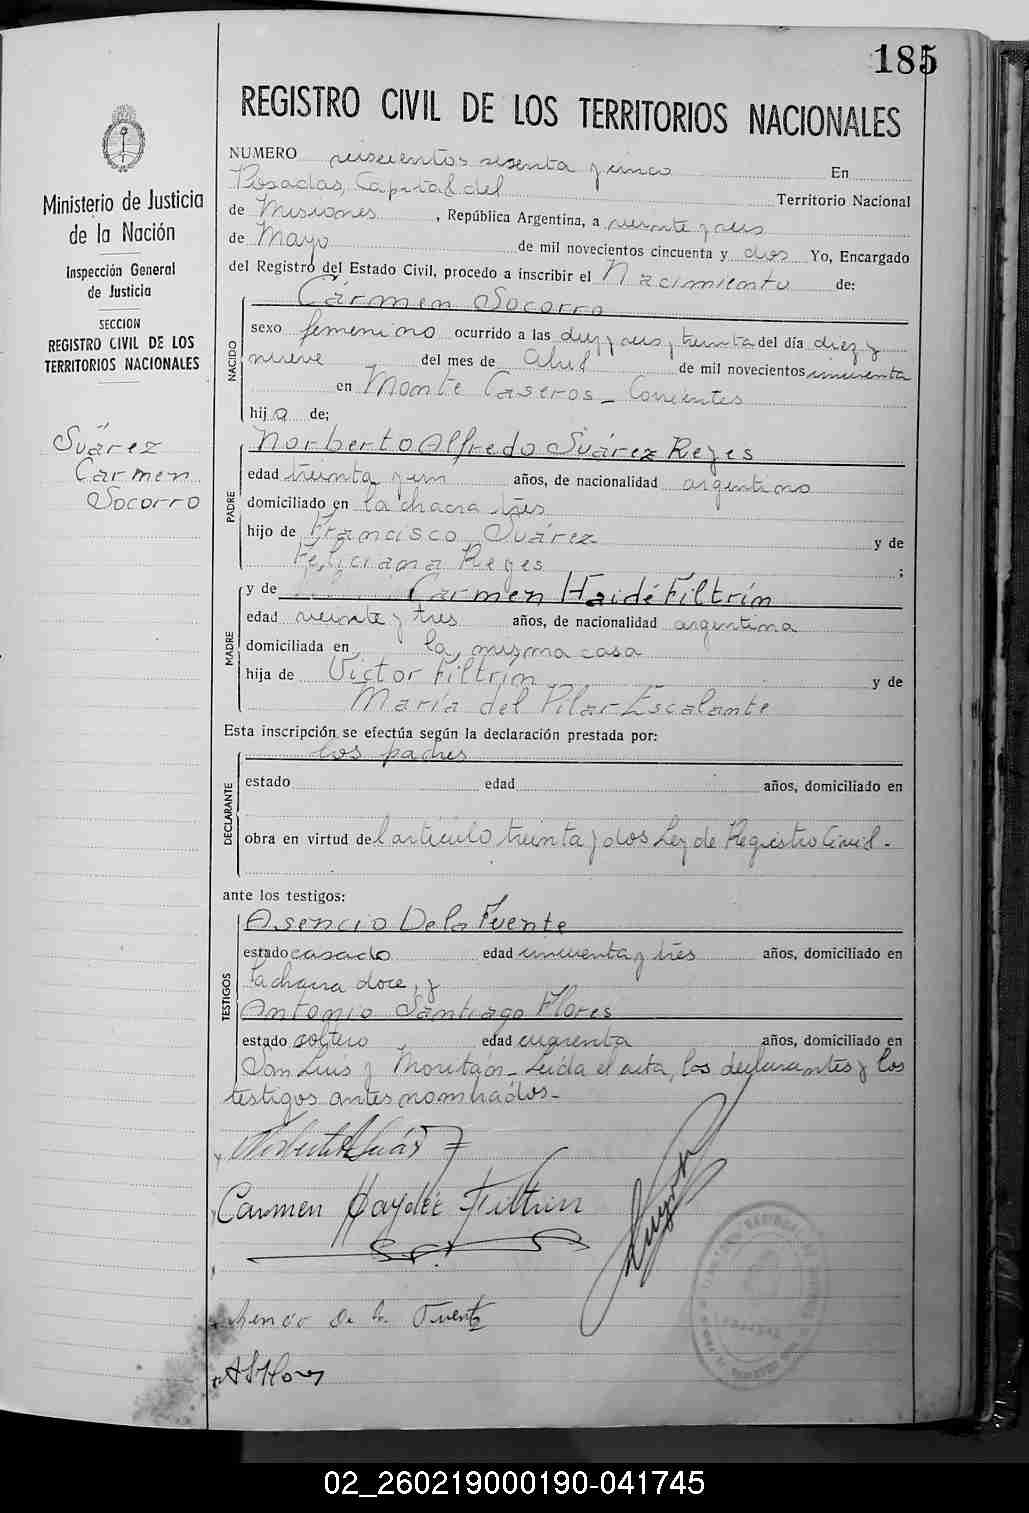 185
REGISTRO CIVIL DE LOS TERRITORIOS NACIONALES
Ministerio de Justicia
de la Nación
Inspección General
de Justicia
SECCION
REGISTRO CIVIL DE LOS
TERRITORIOS NACIONALES
Suárez
Carmen
Socorro
NUMERO seiscientos sesenta y cinco En
Posadas, Capital del Territorio Nacional
de Misiones, República Argentina, a veinte y seis
de Mayo de mil novecientos cincuenta y dos Yo, Encargado
del Registro del Estado Civil, procedo a inscribir el Nacimiento de:
Carmen Socorro
NACIDO
sexo femenino ocurrido a las diez y seis y treinta del día diez y
nueve del mes de Abril de mil novecientos cincuenta
en Monte Caseros - Corrientes
hija de;
PADRE
Norberto Alfredo Suárez Reyes
edad treinta y un años, de nacionalidad argentino
domiciliado en la chacra tres
hijo de Francisco Suárez y de
Feliciana Reyes ;
MADRE
y de Carmen Haidé Filtrín
edad veinte y tres años, de nacionalidad argentina
domiciliada en la misma casa
hija de Victor Filtrin y de
María del Pilar Escalante
Esta inscripción se efectúa según la declaración prestada por:
DECLARANTE
los padres
estado edad años, domiciliado en
obra en virtud del artículo treinta y dos Ley de Registro Civil.-
ante los testigos:
TESTIGOS
Asencio De la Fuente
estado casado edad cincuenta y tres años, domiciliado en
la chacra doce, y
Antonio Santiago Flores
estado soltero edad cuarenta años, domiciliado en
San Luis y Moritán - Leída el acta, los declarantes y los
testigos antes nombrados.-
Carmen Haydée Filtrin
De la Fuente
A S Flores
02_260219000190-041745